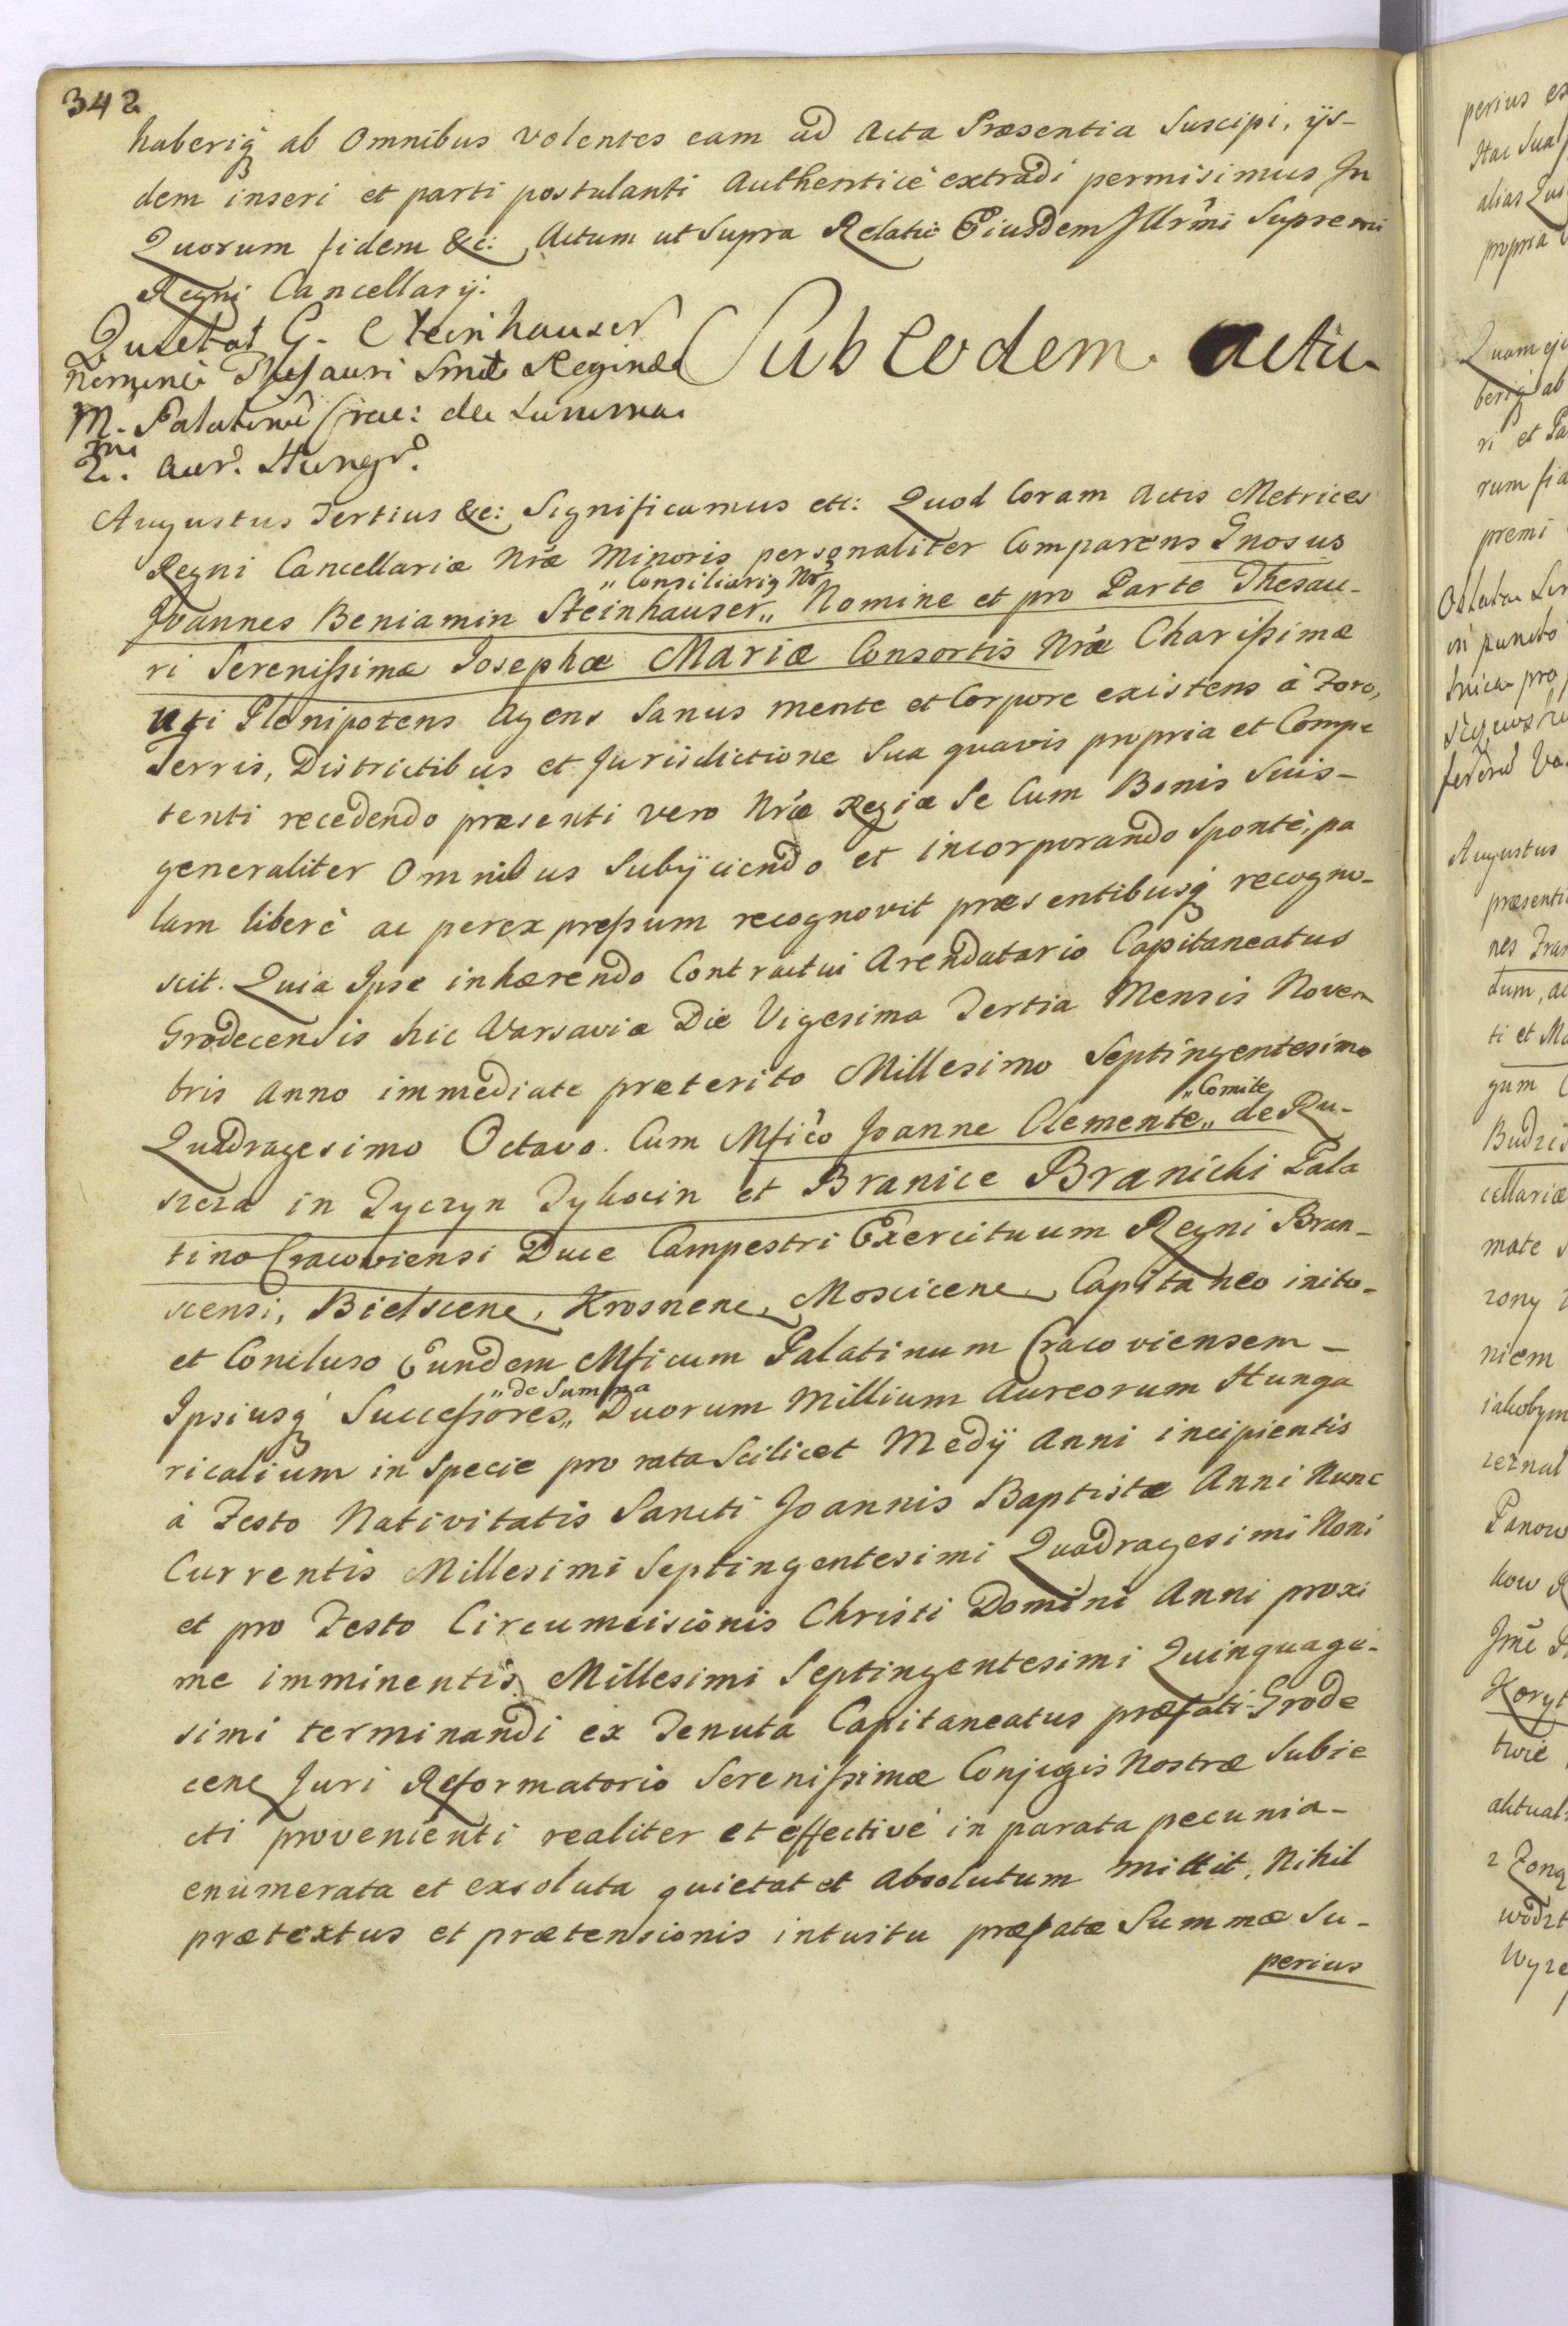 342
haberiq3 ab Omnibus volentes eam ad Acta Præsentia Suscipi, ijs-
dem inseri et parti postulanti Authenticè extradi permisimus In
Quorum fidem &c: Actum ut Supra Relatio Eiusdem Illrmi Supremi
Regni Cancellarij.
Quietat G. Steinhauser
nomine Thesauri Smæ Reginæ
M. Palatinū Crac: de Summa
2. mi aur. Hungr.
Sub Eodem actu
Augustus Tertius &c: Significamus etc: Quod Coram Actis Metrices
Regni Cancellariæ Nræ Minoris personaliter Comparens Gnosus
Joannes Beniamin Steinhauser „Consiliariq Nr„ Nomine et pro Parte Thesau-
ri Serenissimæ Josephæ Mariæ Consortis Nræ Charissimæ
uti Plenipotens Agens Sanus mente et Corpore existens à Foro,
Terris, Districtibus et Jurisdictione Sua quavis propria et Compe
tenti recedendo præsenti vero Nræ Regiæ Se Cum Bonis Suis-
generaliter Omnibus Subijciendo et incorporando Sponte, pa
lam liberè ac per expressum recognovit præsentibusq3 recogno-
scit. Quia Ipse inhærendo Contractui Arendatario Capitaneatus
Grodecensis hic Varsaviæ Die Vigesima Tertia Mensis Novem
bris Anno immediate præterito Millesimo Septingentesimo
Quadragesimo Octavo. Cum Mfico Joanne Clemente „Comite„ de Ru-
szcza in Tyczyn Tykocin et Branice Branicki Pala
tino Cracoviensi Duce Campestri Exercituum Regni Bran-
scensi, Bielscene, Krosnene, Moscicene, Capitaneo inito-
et Concluso Eundem Mficum Palatinum Cracoviensem-
Ipsiusq3 Successores „de Summa„ Duorum Millium Aureorum Hunga
ricalium in Specie pro rata Scilicet Medij Anni incipientis
à Festo Nativitatis Sancti Joannis Baptistæ Anni Nunc
Currentis Millesimi Septingentesimi Quadragesimi Noni
et pro Festo Circumcisionis Christi Domini Anni proxi
me imminentis Millesimi Septingentesimi Quinquage-
simi terminandi ex Tenuta Capitaneatus præfati Grode
cene Juri Reformatorio Serenissimæ Conjugis Nostræ Subie
cti provenienti realiter et effectivè in parata pecunia-
enumerata et exsoluta quietat et Absolutum mittit, Nihil
prætextus et prætensionis intuitu præfatæ Summæ Su-
perius
perius
Itac Sua
alias
propria
Quam
ab
ri et
rum
premi
Oblata
in puncto
pro
Augustus
præsenti
nes
dum,
ti et
gum
cellariæ
mate
rony
niem
Panow
aktual
Wyze